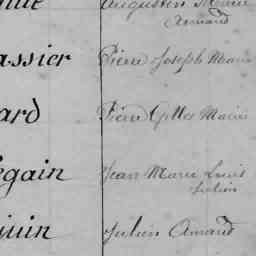 Augustin Marie
Armand
assier Pierre Joseph Marie
ard Pierre Gilles Marie
egain Jean Marie Louis
Julien
juin Julien Amand